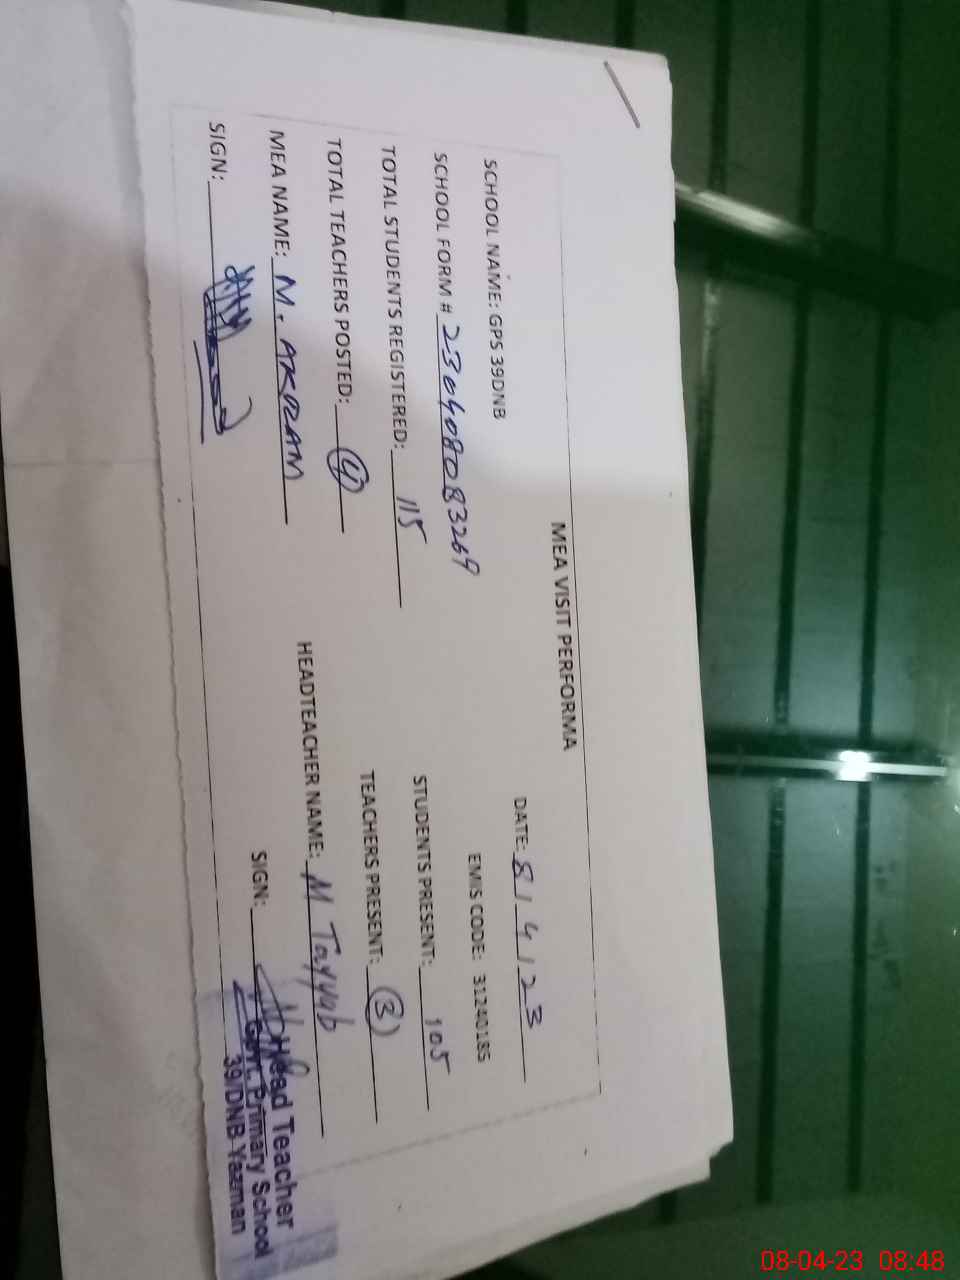 MEA VISIT PERFORMA
SCHOOL NAME: GPS 39DNB DATE: 8/4/23
SCHOOL FORM # 230408083269 EMIS CODE: 31240185
TOTAL STUDENTS REGISTERED: 115 STUDENTS PRESENT: 105
TOTAL TEACHERS POSTED: 4 TEACHERS PRESENT: 3
MEA NAME: M. AKRAM HEADTEACHER NAME: M Tayyab
SIGN: SIGN:
Head Teacher
Govt. Primary School
39/DNB Yazman
08-04-23 08:48